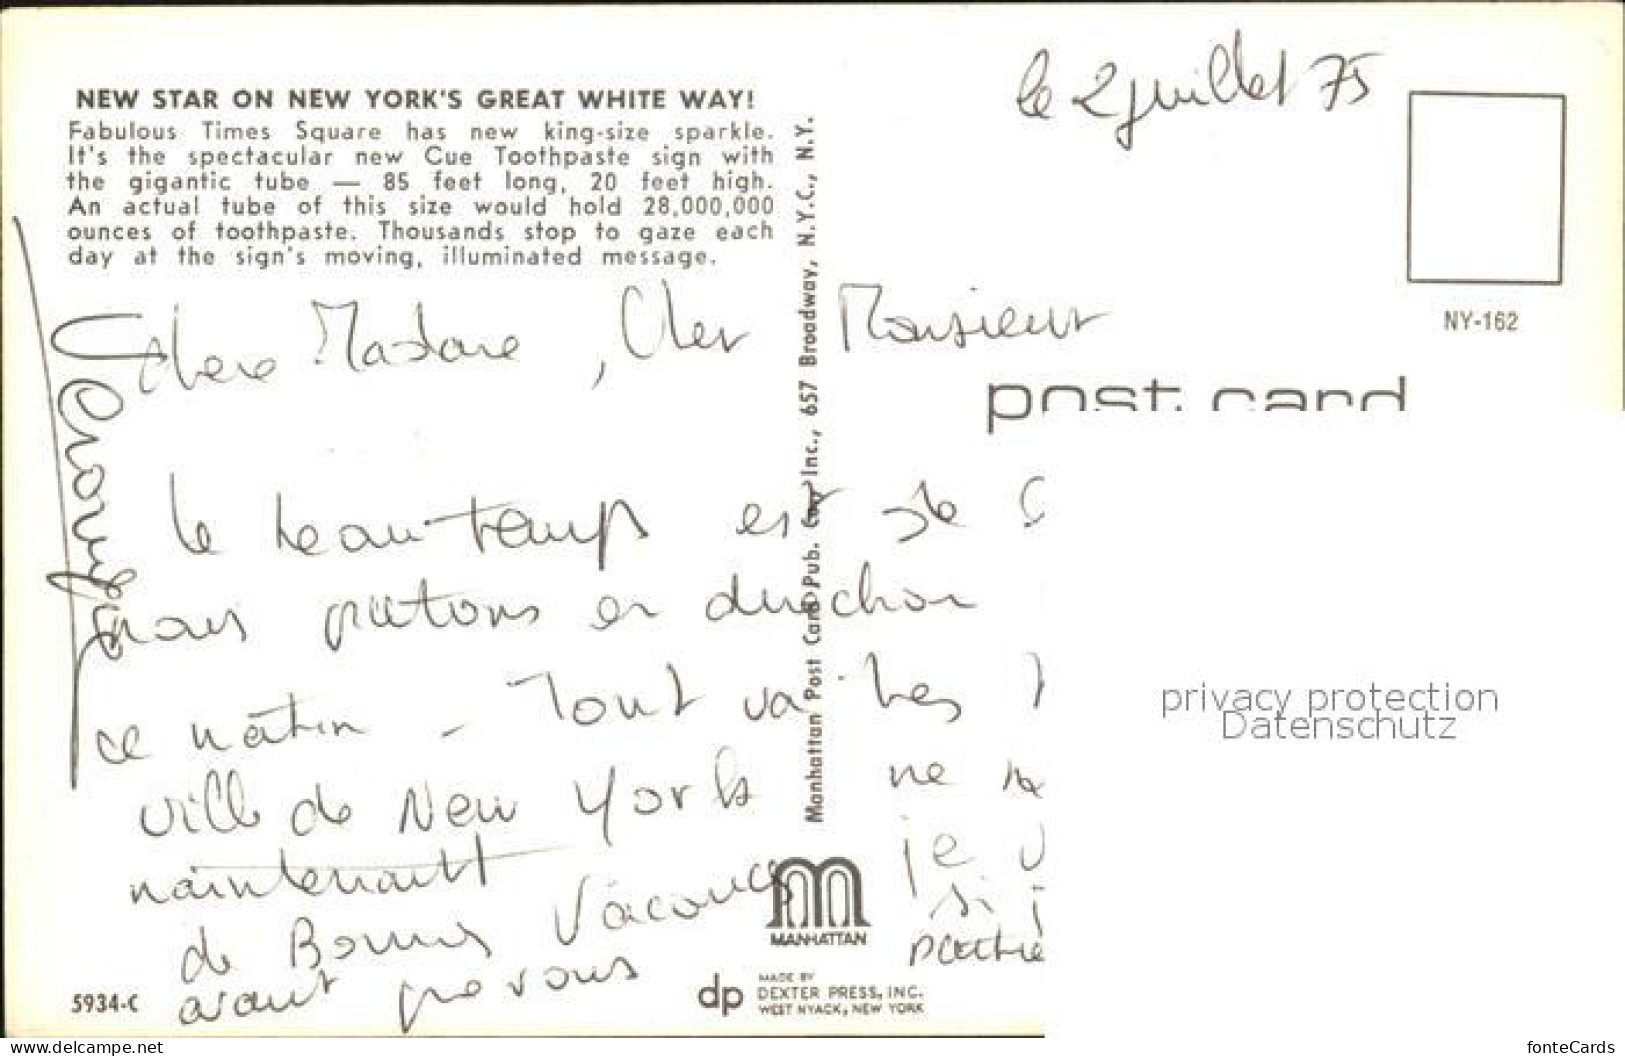 NEW STAR ON NEW YORK'S GREAT WHITE WAY!
Fabulous Times Square has new king-size sparkle.
It's the spectacular new Cue Toothpaste sign with
the gigantic tube — 85 feet long, 20 feet high.
An actual tube of this size would hold 28,000,000
ounces of toothpaste. Thousands stop to gaze each
day at the sign's moving, illuminated message.
le 2 juillet 75
NY-162
post card
Chère Madame, Cher Monsieur
le beau temps est de
nous partons en direction
ce matin - Tout va très
ville de New York ne
maintenant je
de Bonnes Vacances si
avant que vous
Manhattan Post Card Pub. Co., Inc., 657 Broadway, N.Y.C., N.Y.
MANHATTAN
5934-C
dp
MADE BY
DEXTER PRESS, INC.
WEST NYACK, NEW YORK
privacy protection
Datenschutz
www.delcampe.net
fonteCards